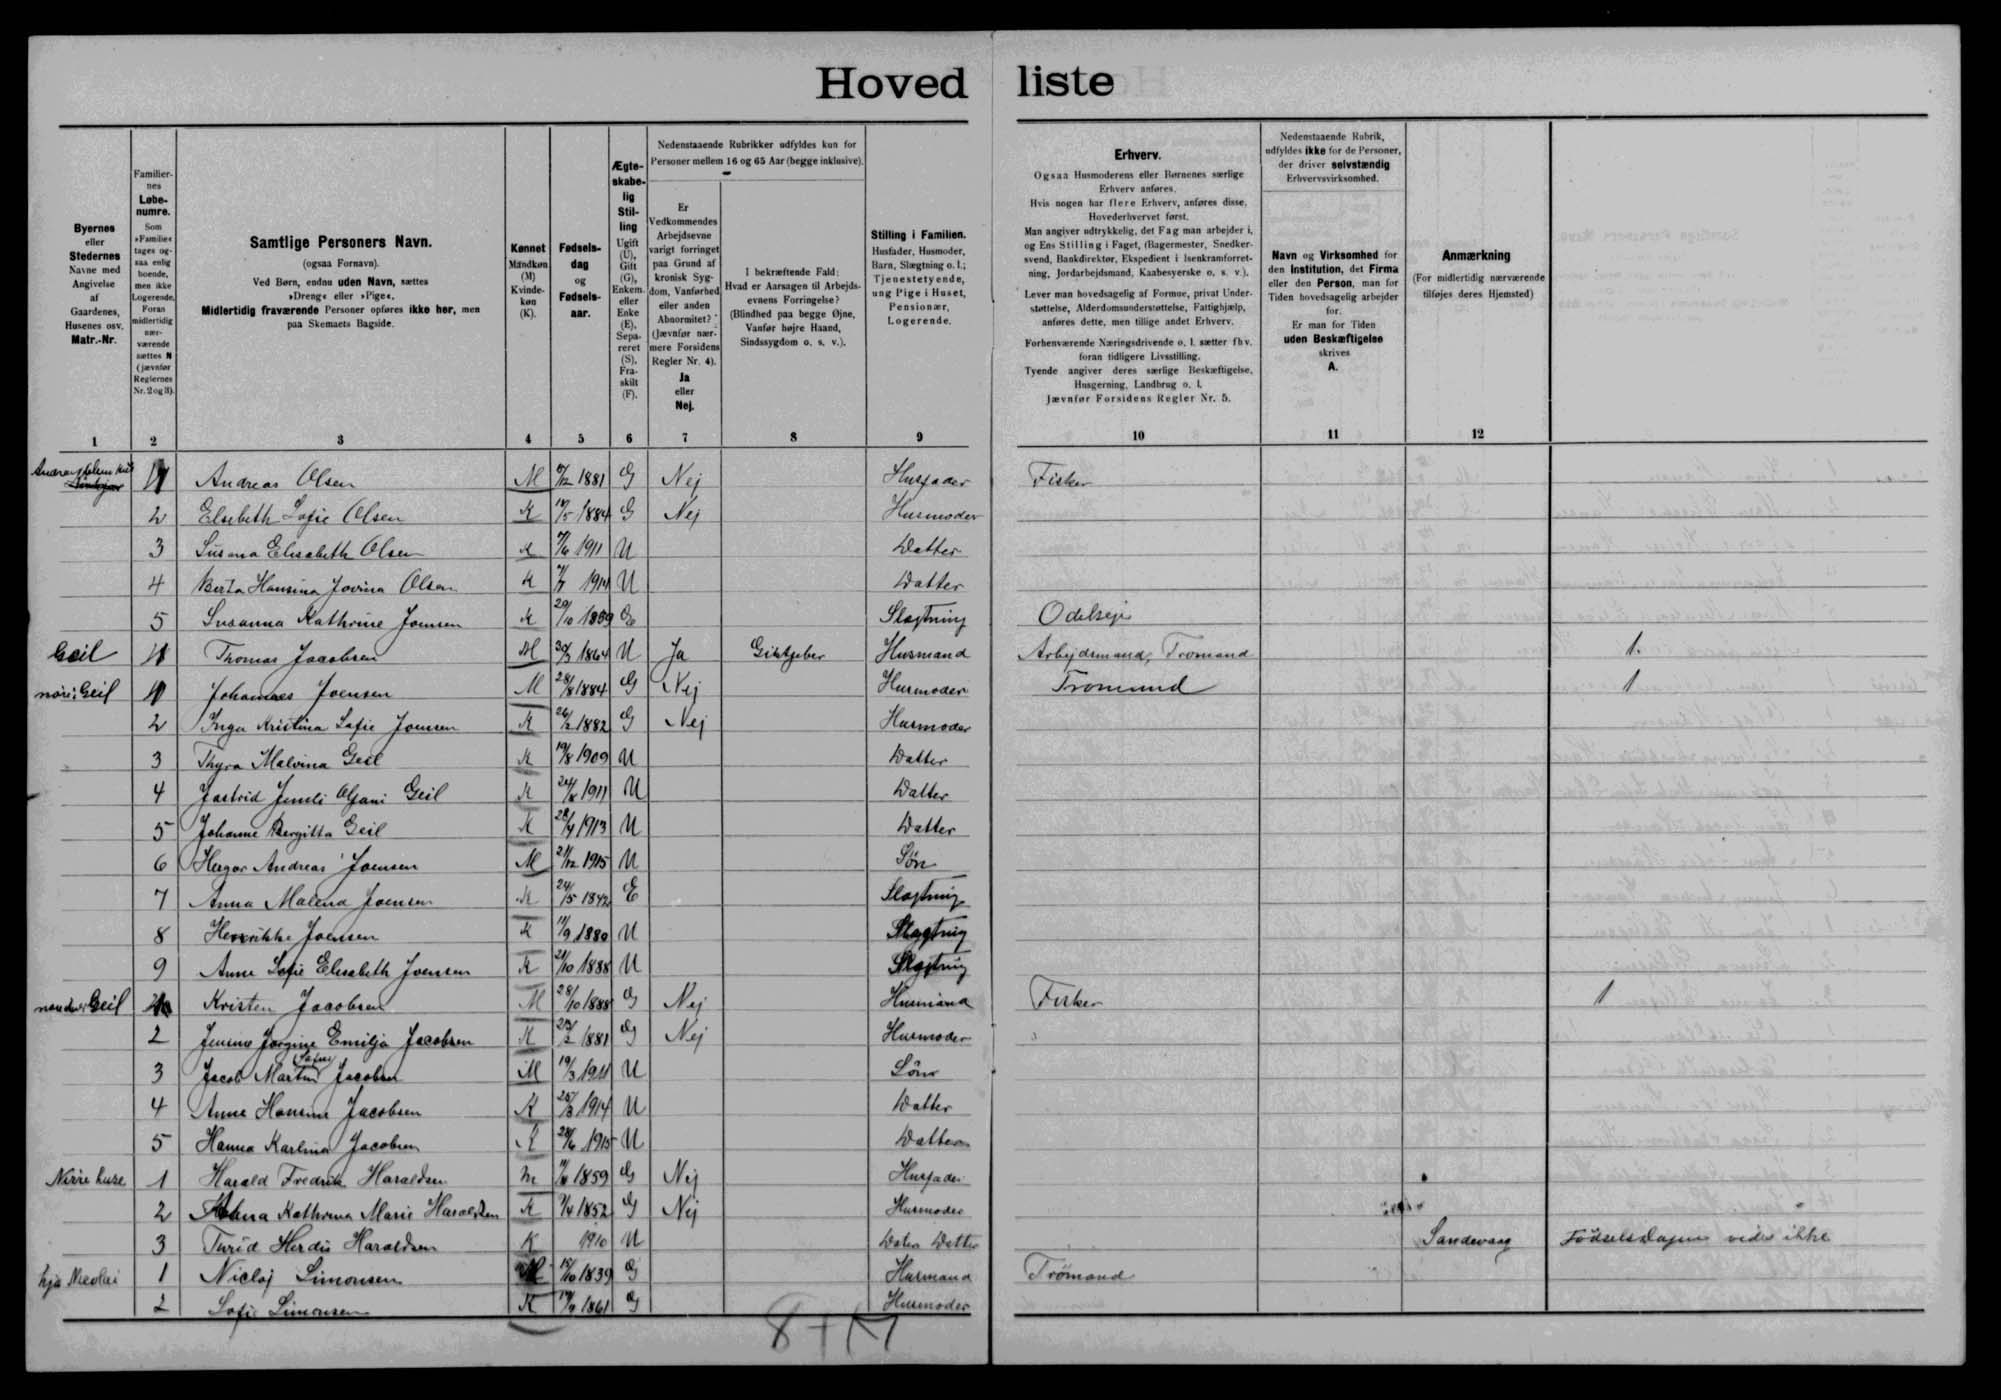 Hoved liste
Byernes eller Stedernes Navne med Angivelse af Gaardenes, Husenes osv. Matr.-Nr.
Familiernes Løbenumre. Som »Familie« tages ogsaa enlig boende, men ikke Logerende. Foran midlertidig nærværende sættes N (jævnfør Reglernes Nr. 2 og 3).
Samtlige Personers Navn. (ogsaa Fornavn). Ved Børn, endnu uden Navn, sættes »Dreng« eller »Pige«. Midlertidig fraværende Personer opføres ikke her, men paa Skemaets Bagside.
Kønnet Mandkøn (M) Kvindekøn (K).
Fødselsdag og Fødselsaar.
Ægteskabelig Stilling Ugift (U), Gift (G), Enkem. eller Enke (E), Separeret (S), Fraskilt (F).
Nedenstaaende Rubrikker udfyldes kun for Personer mellem 16 og 65 Aar (begge inklusive).
Er Vedkommendes Arbejdsevne varigt forringet paa Grund af kronisk Sygdom, Vanførhed eller anden Abnormitet? (Jævnfør nærmere Forsidens Regler Nr. 4). Ja eller Nej.
I bekræftende Fald: Hvad er Aarsagen til Arbejdsevnens Forringelse? (Blindhed paa begge Øjne, Vanfør højre Haand, Sindssygdom o. s. v.).
Stilling i Familien. Husfader, Husmoder, Barn, Slægtning o. l.; Tjenestetyende, ung Pige i Huset, Pensionær, Logerende.
Erhverv.
Ogsaa Husmoderens eller Børnenes særlige Erhverv anføres.
Hvis nogen har flere Erhverv, anføres disse, Hovederhvervet først.
Man angiver udtrykkelig, det Fag man arbejder i, og Ens Stilling i Faget, (Bagermester, Snedkersvend, Bankdirektør, Ekspedient i Isenkramforretning, Jordarbejdsmand, Kaabesyerske o. s. v.).
Lever man hovedsagelig af Formue, privat Understøttelse, Alderdomsunderstøttelse, Fattighjælp, anføres dette, men tillige andet Erhverv.
Forhenværende Næringsdrivende o. l. sætter fhv. foran tidligere Livsstilling.
Tyende angiver deres særlige Beskæftigelse, Husgerning, Landbrug o. l.
Jævnfør Forsidens Regler Nr. 5.
Nedenstaaende Rubrik, udfyldes ikke for de Personer, der driver selvstændig Erhvervsvirksomhed.
Navn og Virksomhed for den Institution, det Firma eller den Person, man for Tiden hovedsagelig arbejder for.
Er man for Tiden uden Beskæftigelse skrives A.
Anmærkning (For midlertidig nærværende tilføjes deres Hjemsted)
1 2 3 4 5 6 7 8 9 10 11 12
1 Andreas Olsen M 1881 G Nej Husfader Fisker
2 Elsebeth Sofie Olsen K 1884 G Nej Husmoder
3 Susana Elisabeth Olsen K 1911 U Datter
4 Berta Hansina Jovina Olsen K 1914 U Datter
5 Susanna Kathrine Joensen K 29/10 1859 E Slagtning
Geil 1 Thomas Jacobsen M 1864 U Ja Giktfeber Husmand Arbejdsmand, Tromand 1.
Geil 1 Johannes Joensen M 28/8 1884 G Nej Husmoder Tromand 1
2 Inga Kristina Sofie Joensen K 26/2 1882 G Nej Husmoder
3 Thyra Malvina Geil K 19/8 1909 U Datter
4 Jastrid Geil K 1911 U Datter
5 Johanne Bergitta Geil K 1913 U Datter
6 Andreas Joensen M 21/12 1915 U Søn
7 Anna Malena Joensen K 24/5 1842 E Slagtning
8 Henrikke Joensen K 11/9 1880 U Slagtning
9 Anne Sofie Elisabeth Joensen K 21/10 1888 U Slagtning
Geil 1 Kristen Jacobsen M 28/10 1888 G Nej Husmand Fisker 1
2 Emilja Jacobsen K 1881 G Nej Husmoder
3 Jacob Martin Jacobsen M 19/3 1911 U Søn
4 Anne Hansine Jacobsen K 1914 U Datter
5 Hanna Karlina Jacobsen K 1915 U Datter
1 Harald Fredrik Haraldsen M 1859 G Nej Husfader
2 Kathrina Marie Haraldsen K 1852 G Nej Husmoder
3 Turid Herdis Haraldsen K 1910 U Datter Sandevaag Fødselsdagen vides ikke
1 Niclaj Simonsen M 1839 G Husmand Trömand
2 Sofie Simonsen K 1861 G Husmoder